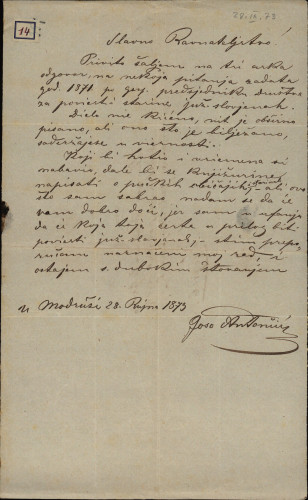 28. IX. 73
14
Slavno Ravnateljstvo!
Privito šaljem na tri arka
odgovor, na nekoja pitanja zadata
god. 1871 po gosp. predsjedniku društva
za povjest starine južslovjenah.
Dielo nije kićeno, nit je obširno
pisano, ali ono što je bilježeno,
sadržaje se u viernosti.
Koji bi hotio i vriemena si
nabavio, dale bi se knjižurine
napisati o pučkih običajih, ali ovo
što sam sabrao nadam se da će
vam dobro doći, jer sam u ufanju
da će koja toja črta u prilog biti
povjesti južslavjenah,
moj rad, i
ostajem s dubokim štovanjem
U Modrušu 28. Rujna 1873
Joso Antončić